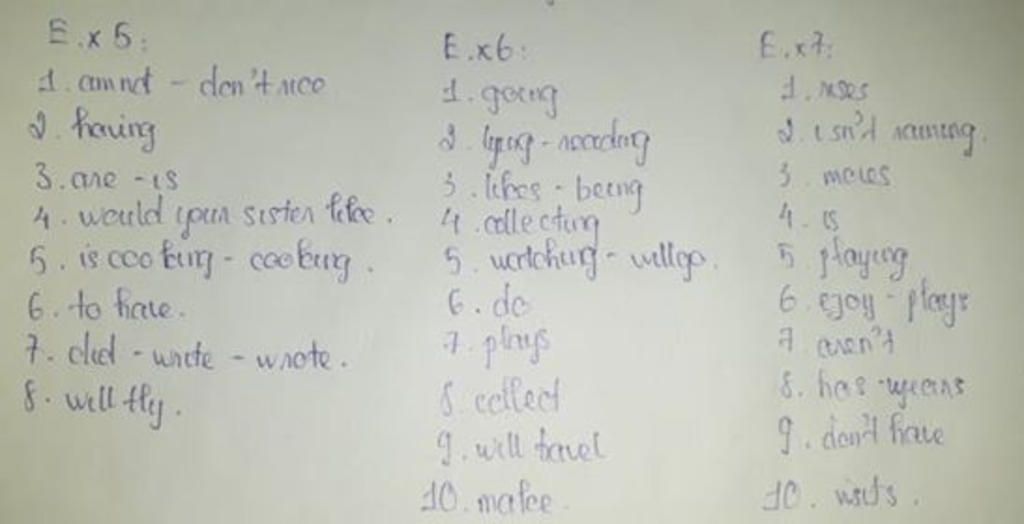 E.x 5:
1. am not - don't use
2. having
3. are - is
4. would your sister like.
5. is cooking - cooking.
6. to have.
7. did - write - wrote.
8. will fly.
E.x6:
1. going
2. lying - reading
3. likes - being
4. collecting
5. watching - will go.
6. do
7. plays
8. collect
9. will travel
10. make.
E.x7:
1.
2. isn't running.
3.
4. is
5 playing
6 ejoy - plays
7 aren't
8. has
9. don't have
10. visits.